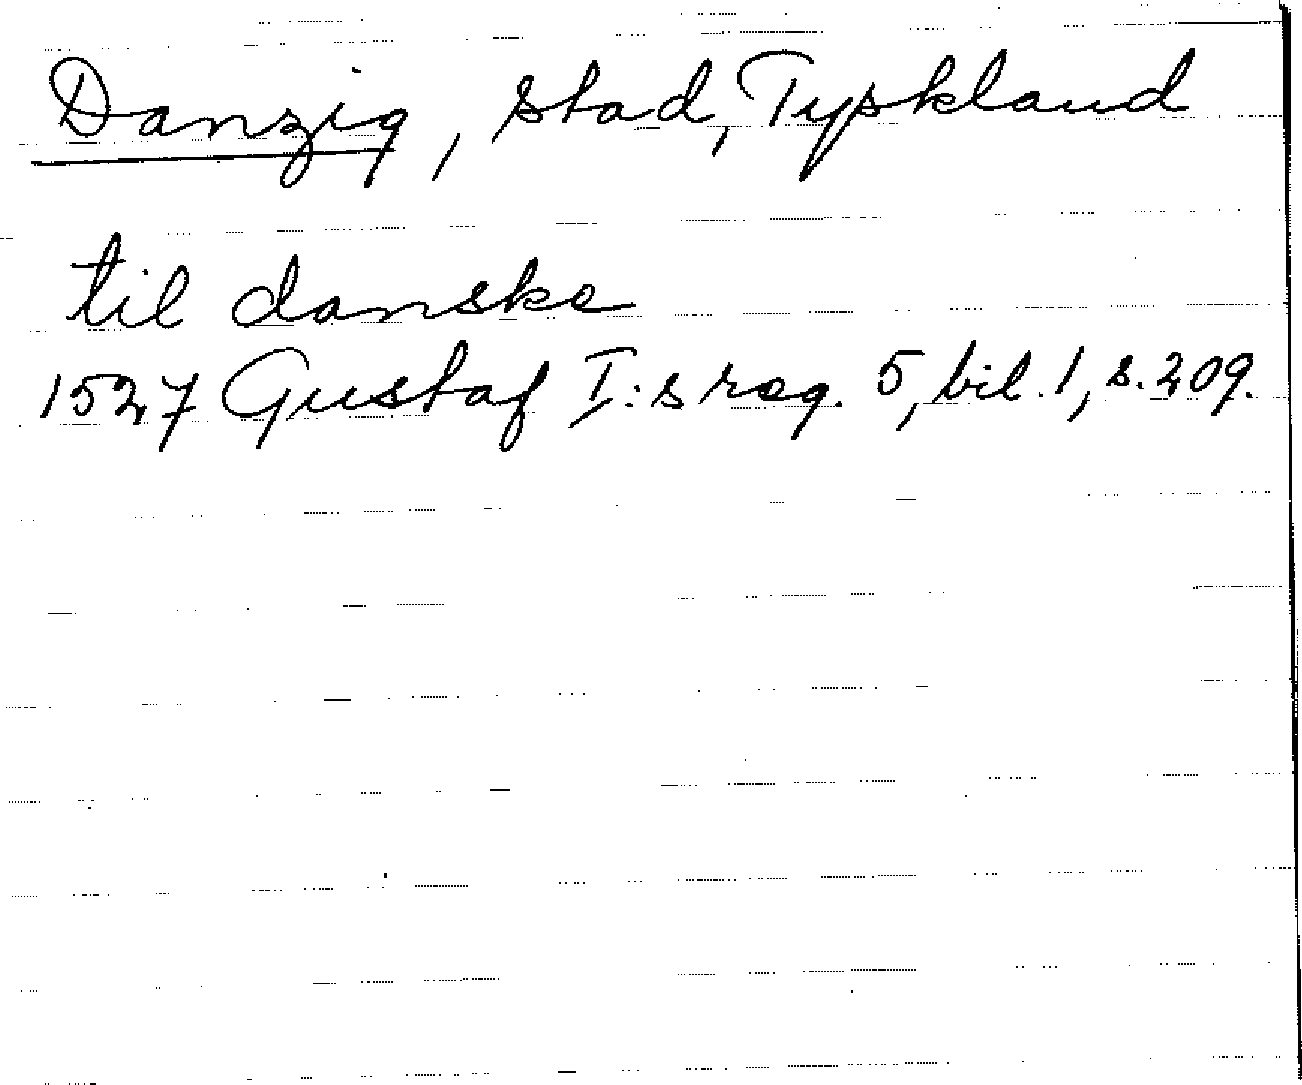 Danzig, stad, Tyskland
til danske
1527 Gustaf I:s reg. 5, bil. 1, s. 209.